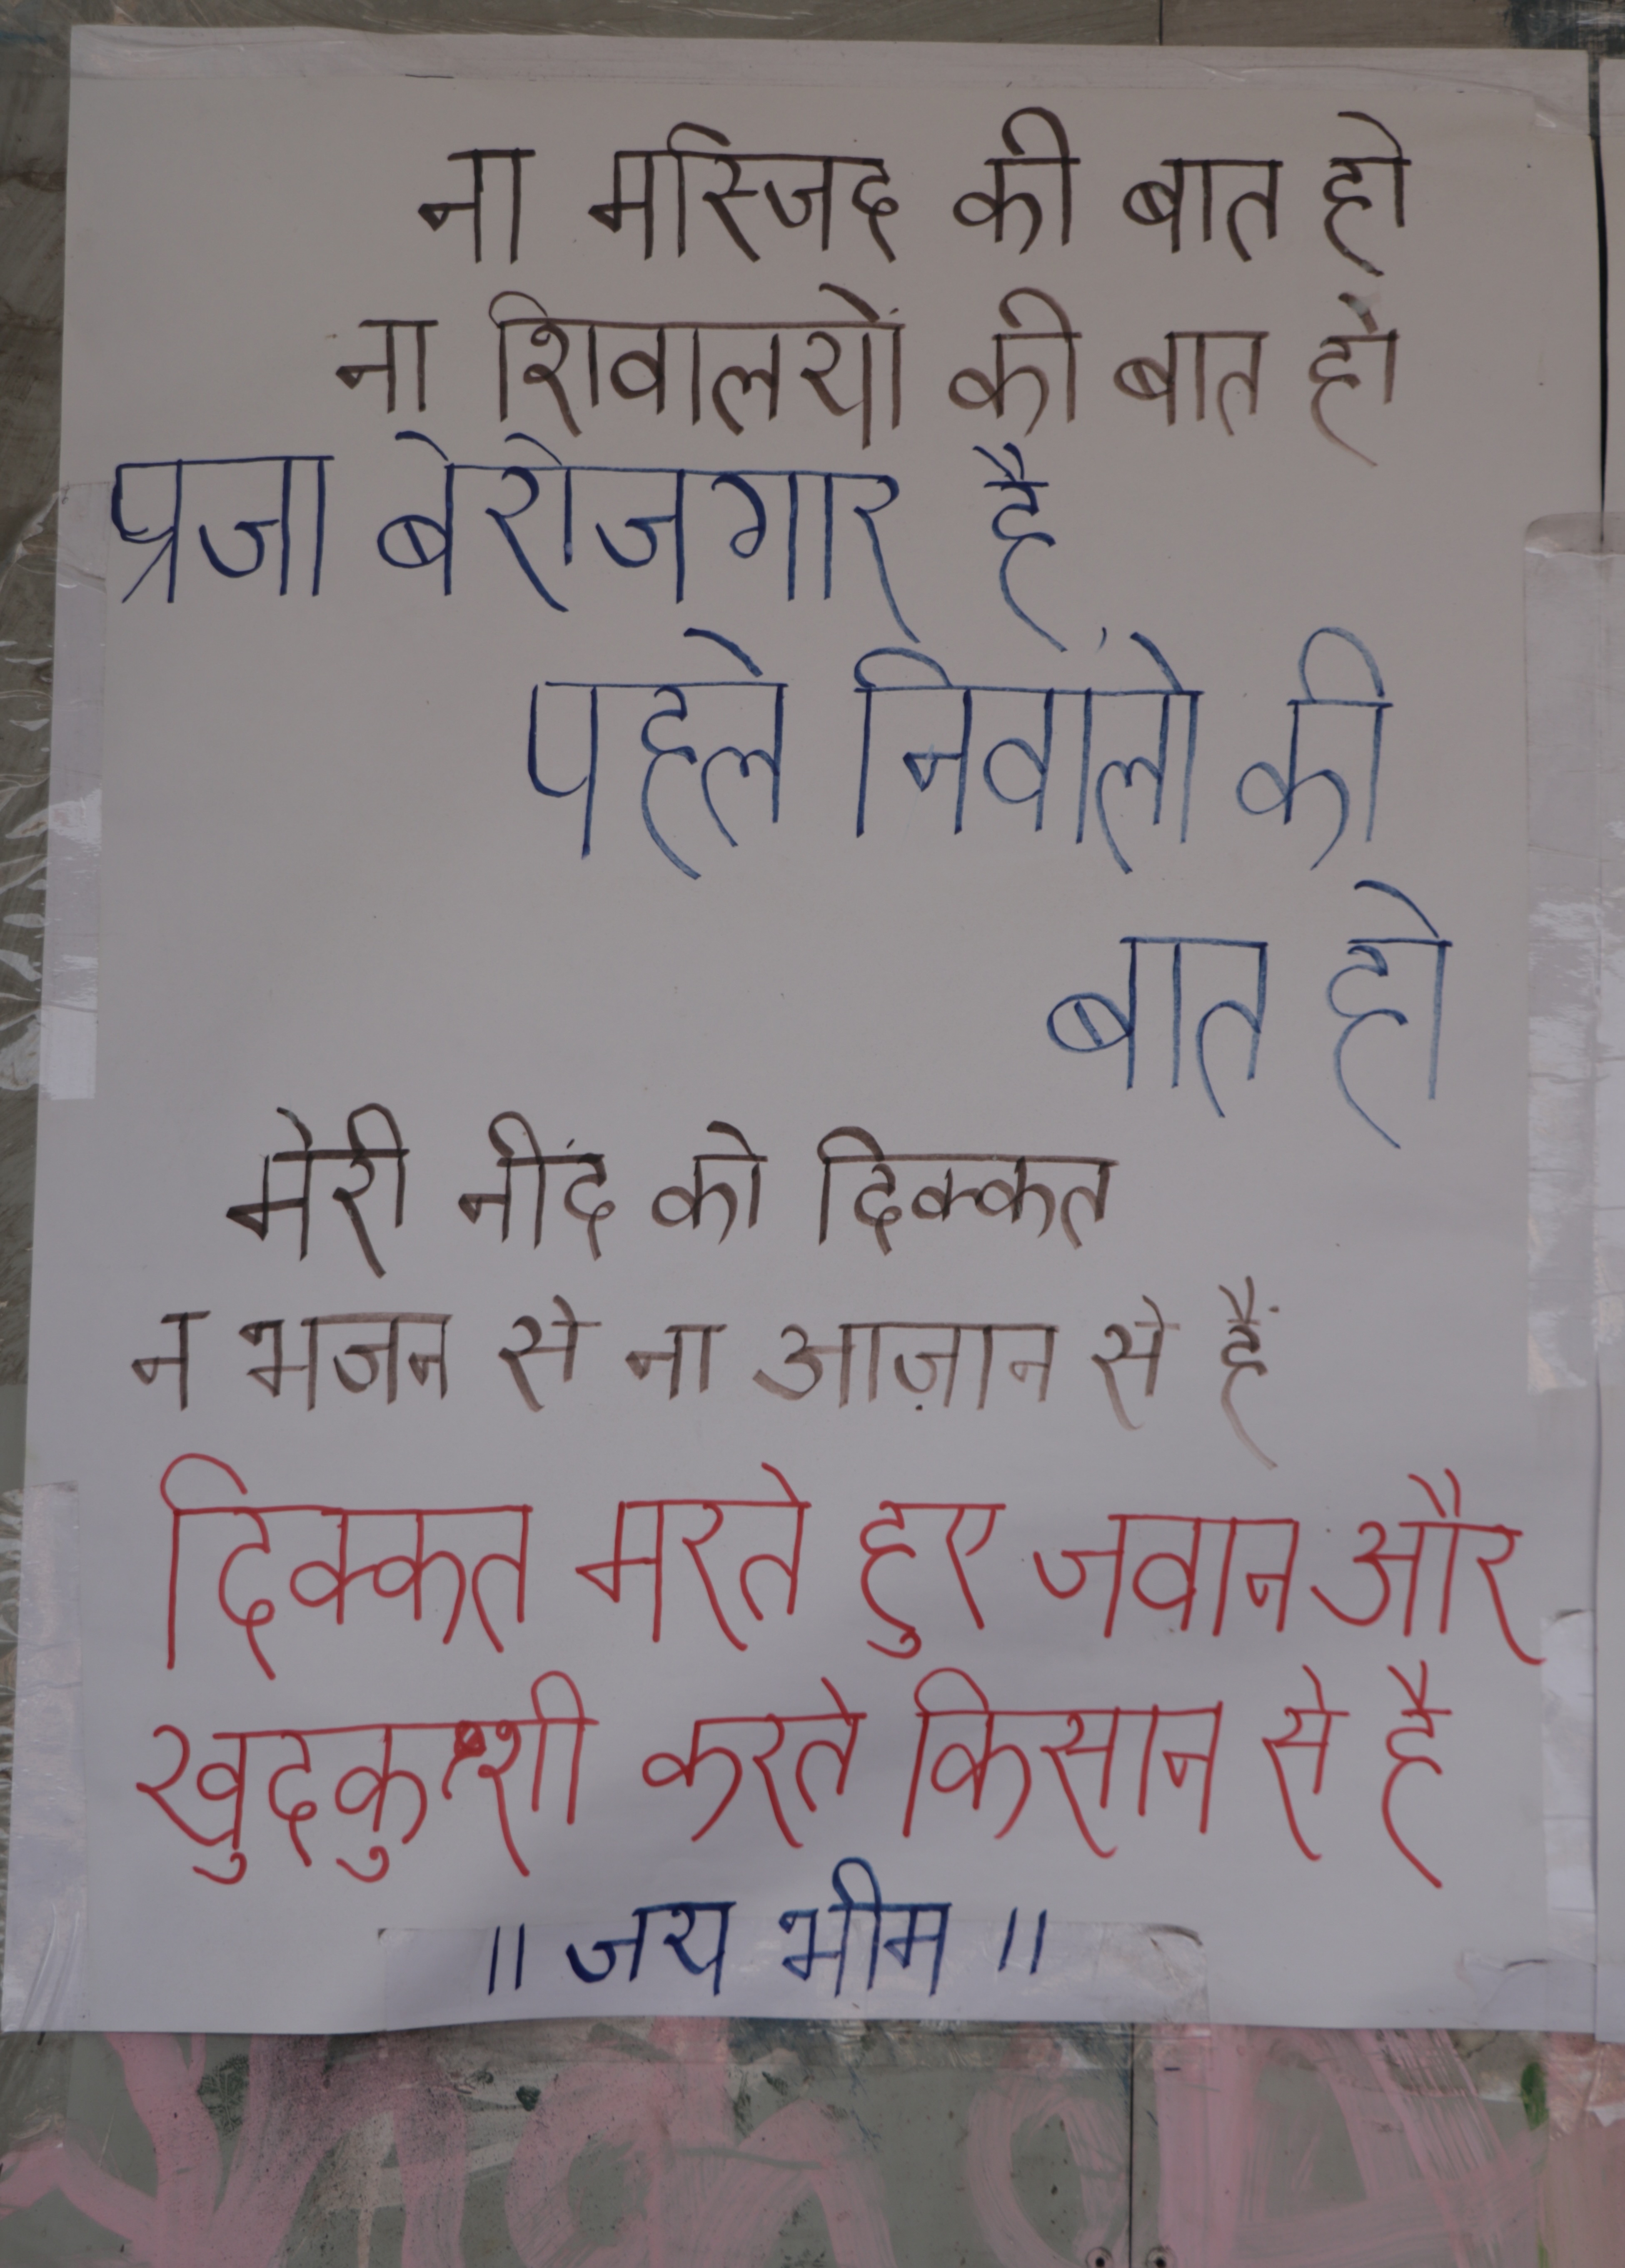 ना मस्जिद की बात हो
ना शिवालयों की बात हो
प्रजा बेरोजगार है
पहले निवालों की
बात हो
मेरी नींद को दिक्कत
न भजन से ना आज़ान से हैं
दिक्कत मरते हुए जवान और
खुदकुशी करते किसान से है
॥ जय भीम ॥